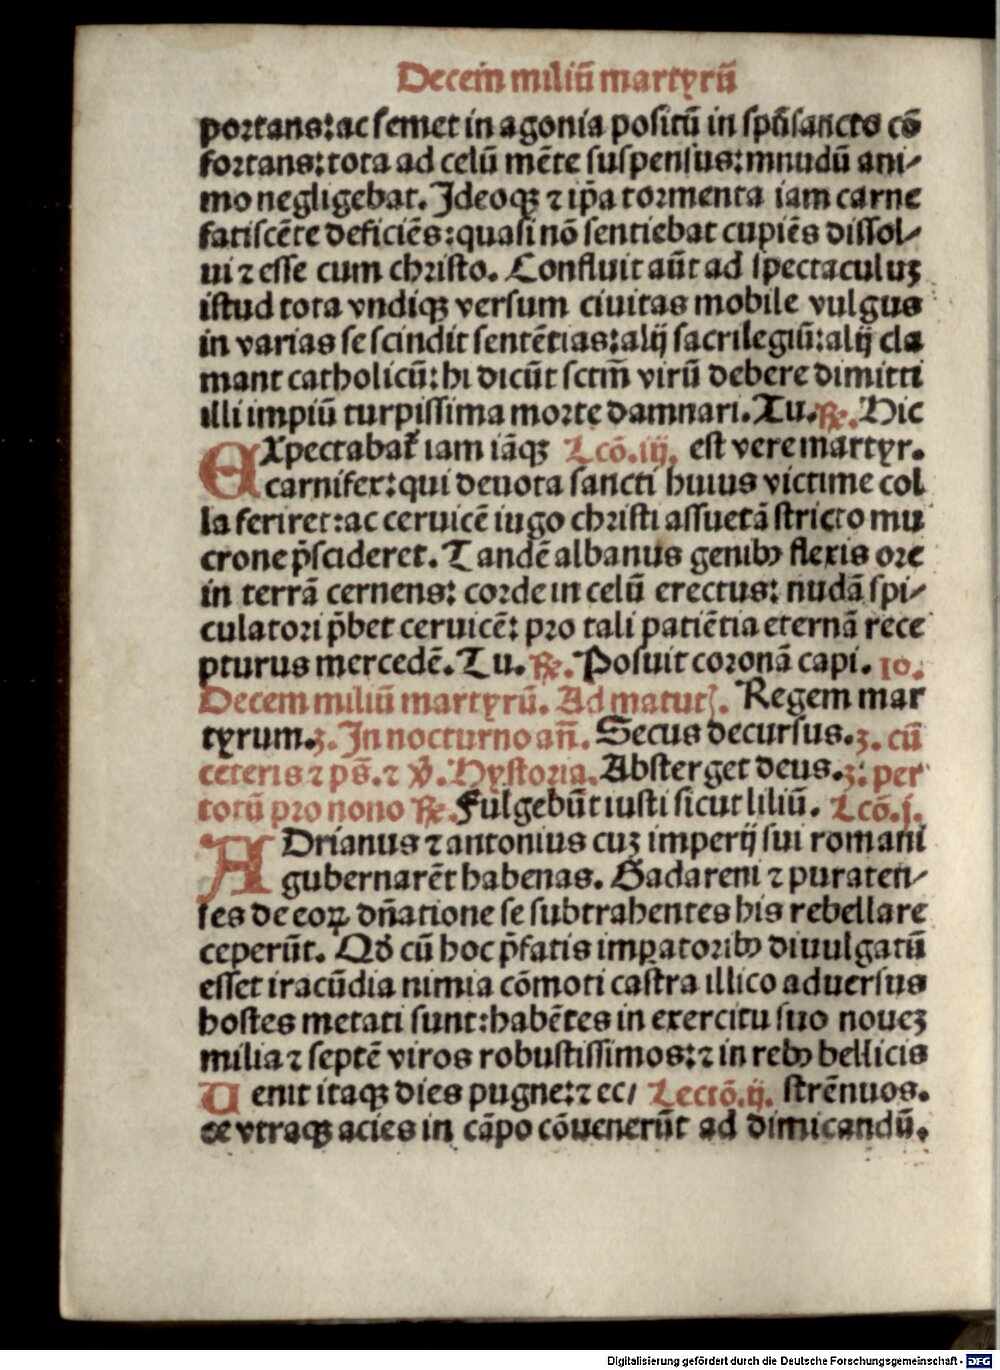 Decem̄ miliū martyrū
portans: ac semet in agonia positū in spū sancto cō
fortans: tota ad celū mēte suspensus: mnudū ani-
mo negligebat. Ideoqꝫ ⁊ ip̄a tormenta iam carne
fatiscēte deficiēs: quasi nō sentiebat cupiēs dissol-
ui ⁊ esse cum christo. Confluit aūt ad spectaculuꝫ
istud tota vndiqꝫ versum ciuitas mobile vulgus
in varias se scindit sentētias: alij sacrilegiū: alij cla
mant catholicū: hi dicūt sctm̄ virū debere dimitti
illi impiū turpissima morte damnari. Tu. ℞. Hic
EXpectabat̄ iam iāqꝫ Lcō. iij. est vere martyr.
carnifex: qui deuota sancti huius victime col
la feriret: ac ceruicē iugo christi assuetā stricto mu
crone p̄scideret. Tandē albanus genibꝰ flexis ore
in terrā cernens: corde in celū erectus: nudā spi-
culatori p̄bet ceruicē: pro tali patiētia eternā rece
pturus mercedē. Tu. ℞. Posuit coronā capi. 10.
Decem miliū martyrū. Ad matutꝭ. Regem mar
tyrum. ꝫ. In nocturno an̄. Secus decursus. ꝫ. cū
ceteris ⁊ ps̄. ⁊ ℣. Hystoria. Absterget deus. ꝫ. per
totū pro nono ℞. Fulgebūt iusti sicut liliū. Lcō. j.
ADrianus ⁊ antonius cuꝫ imperij sui romani
gubernarēt habenas. Gadareni ⁊ puraten-
ses de eoꝝ dn̄atione se subtrahentes his rebellare
ceperūt. Qđ cū hoc p̄fatis impatoribꝰ diuulgatū
esset iracūdia nimia cōmoti castra illico aduersus
hostes metati sunt: habētes in exercitu suo noueꝫ
milia ⁊ septē viros robustissimos: ⁊ in rebꝰ bellicis
Uenit itaqꝫ dies pugne: ⁊ ec/ Lectō. ij. strēnuos.
ce vtraqꝫ acies in cāpo cōuenerūt ad dimicandū.
Digitalisierung gefördert durch die Deutsche Forschungsgemeinschaft - DFG